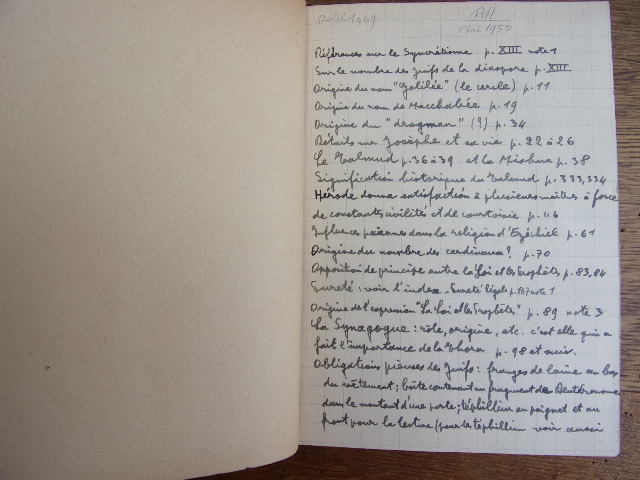 Avril 1949
Mai 1950
Références sur le Syncrétisme p. XIII note 1
Sur le nombre des juifs de la diaspora p. XIII
Origine du nom "Galilée" (le cercle) p. 11
Origine du nom de Macchabée p. 19
Origine du "drogman" (?) p. 34
Détails sur Josèphe et sa vie p. 22 à 26
Le Talmud p. 36 à 39 et la Mishna p. 38
Signification historique du Talmud p. 333, 334
Hérode donna satisfaction à plusieurs maîtres à force
de constantes civilités et de courtoisie p. 46
Influences païennes dans la religion d'Ezéchiel p. 61
Origine du nombre des cardinaux? p. 70
Opposition de principe entre la Loi et les Prophètes p. 83, 84
Pureté : voir l'index - Pureté légale p. 187 note 1
Origine de l'expression "La Loi et les Prophètes" p. 89 note 3
La Synagogue : rôle, origine, etc. c'est elle qui a
fait l'importance de la Thora p. 98 et suiv.
Obligations pieuses des Juifs : franges de laine au bas
du vêtement ; boîte contenant un fragment du Deutéronome
dans le montant d'une porte ; téphillim au poignet et au
front pour la lecture (pour les téphillim voir aussi